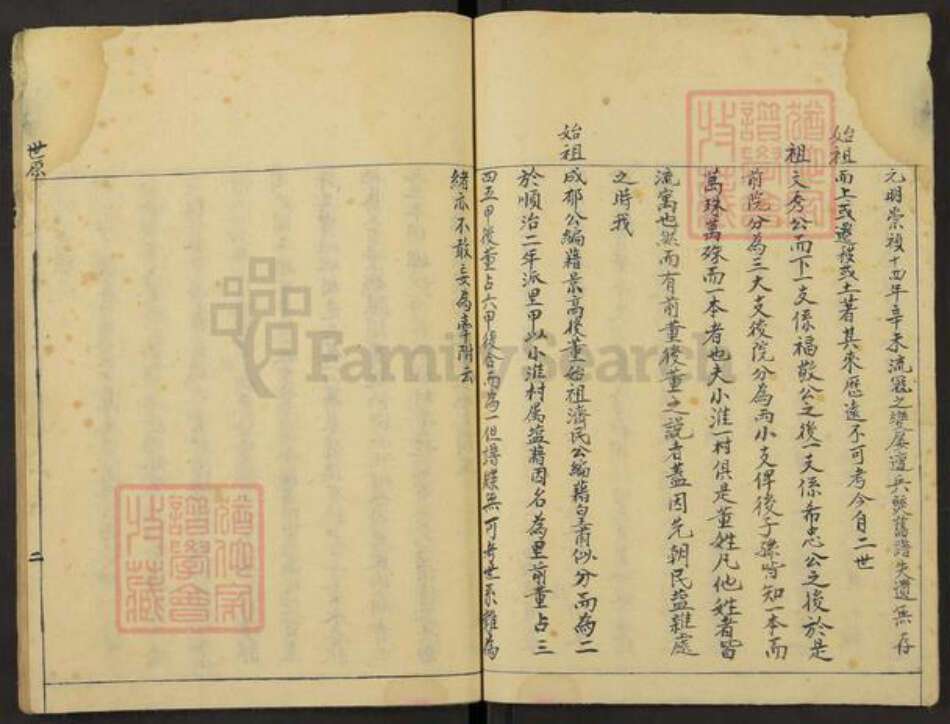 元明崇禎十四年辛未流寇之變屢遭兵燹舊譜失遺無存
始祖而上或遷移或土著其來歷遠不可考今自二世
祖文秀公而下一支係福敬公之後一支係希忠公之後於是
前院分為三大支後院分為兩小支俾後子孫皆知一本而
萬殊萬殊而一本者也夫小淮一村俱是董姓凡他姓者皆
流寓也然而有前董後董之說者蓋因先朝民益雜處
之時我
始祖成郁公編籍崇高後董始祖濟民公編籍皇甫似分而為二
於順治二年派里甲以小淮村属益籍因名為里前董占三
四五甲後董占六甲後合而為一但譜牒無可考世系難為
緒亦不敢妄為牽附云
世原
二
FamilySearch